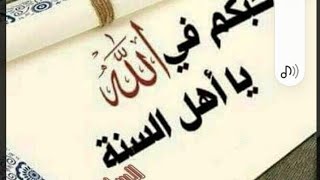 حبكم في الله
يا أهل السنة